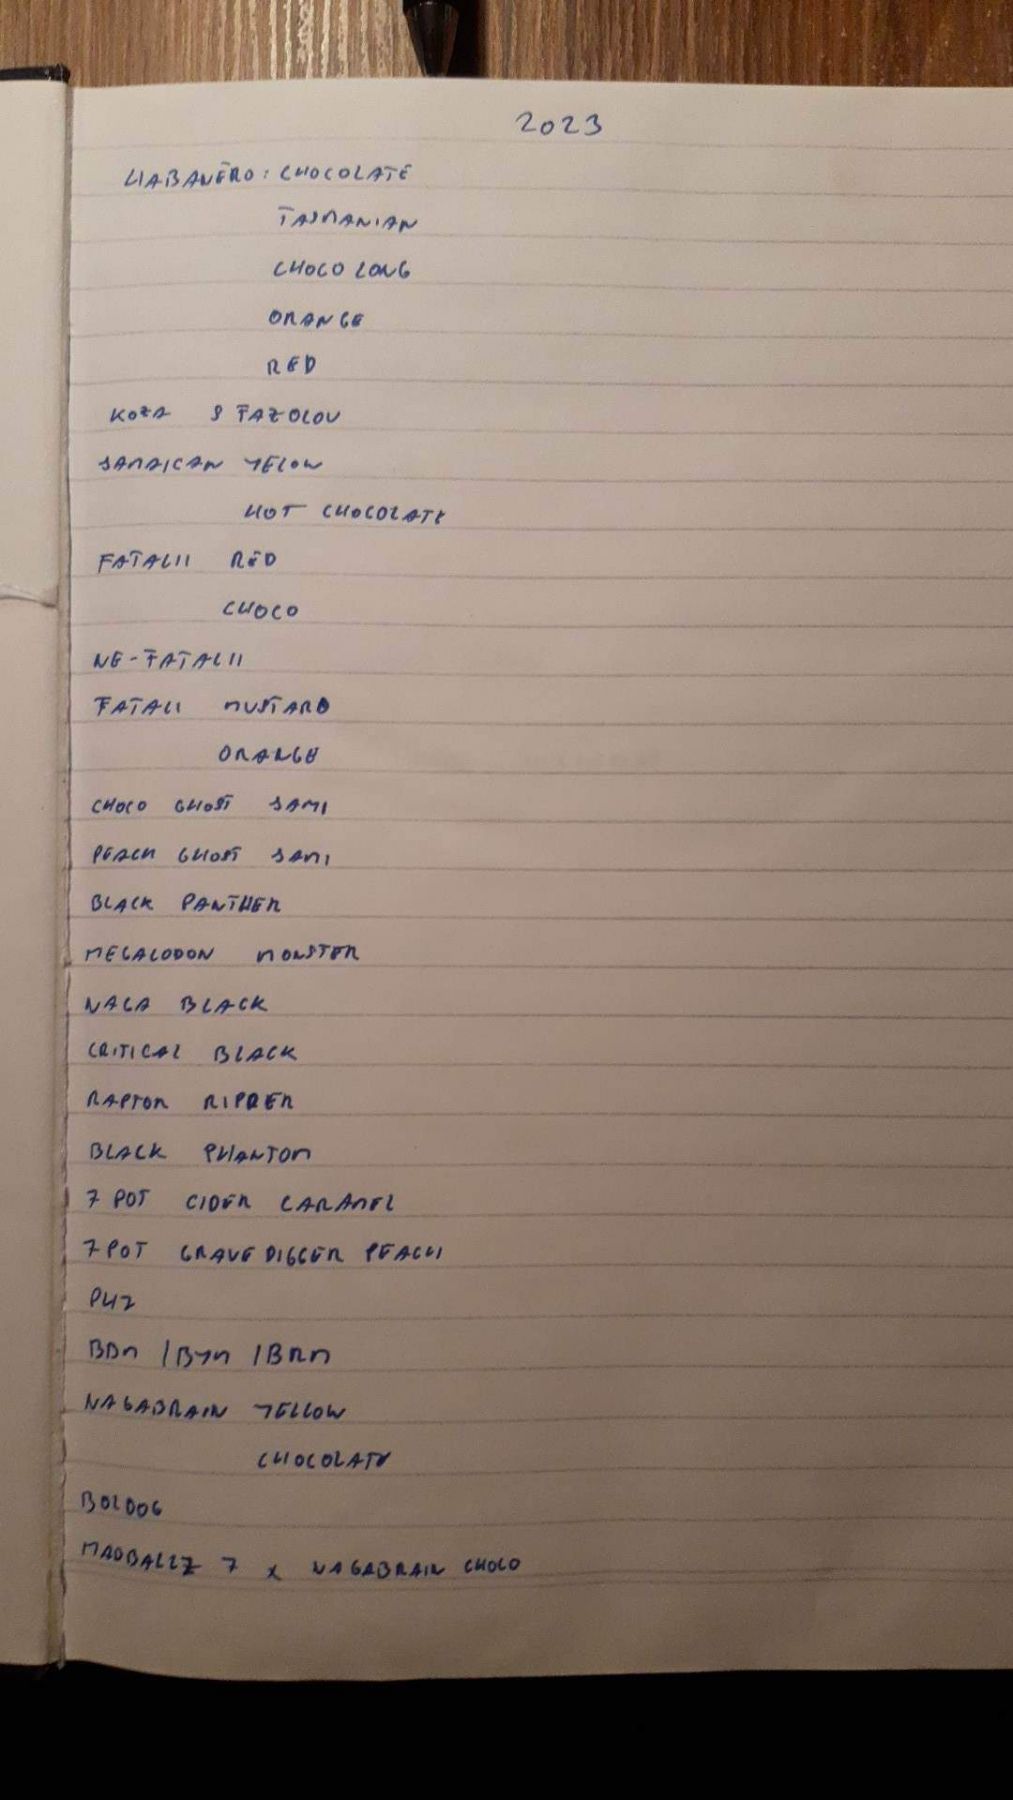 2023
HABANERO: CHOCOLATE
TASMANIAN
CHOCO LONG
ORANGE
RED
KOZA S FAZOLOU
JAMAICAN YELOW
HOT CHOCOLATE
FATALII RED
CHOCO
NE-FATALII
FATALI MUSTARD
ORANGE
CHOCO GHOST JAMI
PEACH GHOST JAMI
BLACK PANTHER
MEGALODON MONSTER
NAGA BLACK
CRITICAL BLACK
RAPTOR RIPPER
BLACK PHANTOM
7 POT CIDER CARAMEL
7 POT GRAVE DIGGER PEACH
BDM / BYM / BRM
NAGABRAIN YELLOW
CHOCOLATE
BOLDOG
MADBALLZ 7 x NAGABRAIN CHOCO